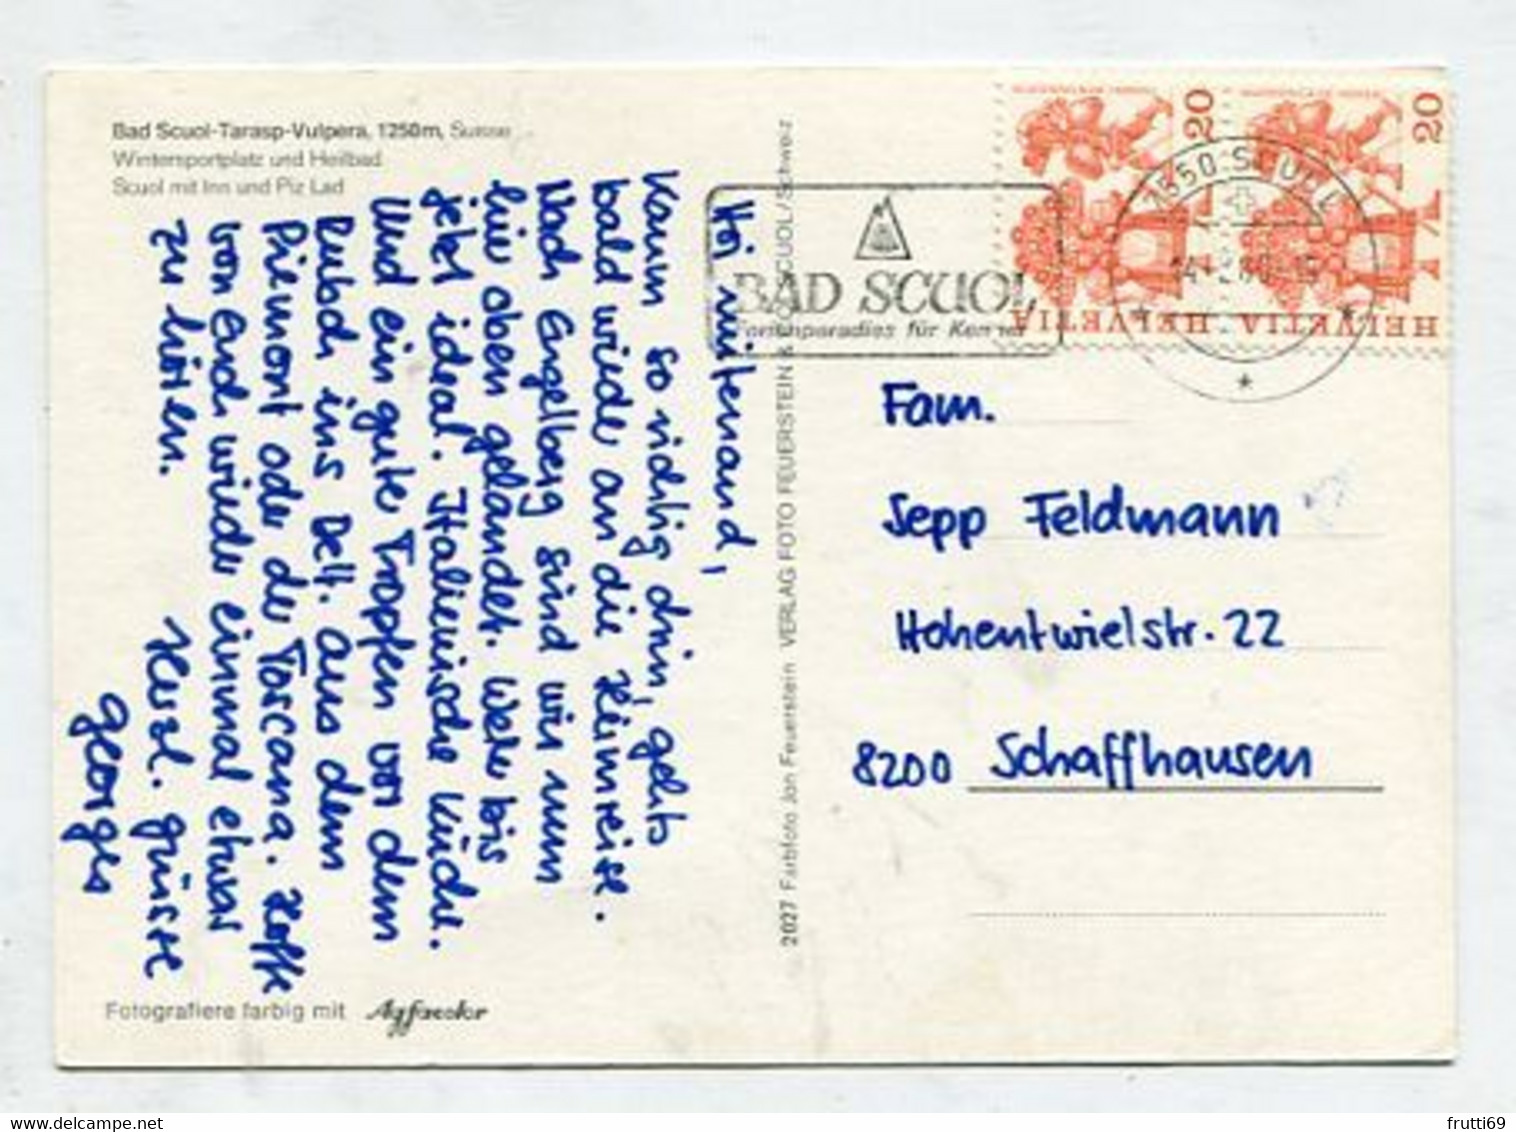 Bad Scuol-Tarasp-Vulpera, 1250m, Suisse
Wintersportplatz und Heilbad
Scuol mit Inn und Piz Lad
Hoi mitenand,
Kaum so richtig drin, gehts
bald wieder an die Heimreise.
Nach Engelberg sind wir nun
hier oben gelandet. Wetter bis
jetzt ideal. Italienische Küche.
Und ein guter Tropfen vor dem
ins Bett. aus dem
Piemont oder der Toscana. Hoffe
von Euch wieder einmal etwas
zu hören.
Herzl. grüsse
Georges
Fotografiere farbig mit Agfacolor
2027 Farbfoto Jon Feuerstein VERLAG FOTO FEUERSTEIN & CO SCUOL/Schweiz
BAD SCUOL
Ferienparadies für Kenner
7550 SCUOL
20
20
HELVETIA HELVETIA HELVETIA
Fam.
Sepp Feldmann
Hohentwielstr. 22
8200 Schaffhausen
frutti69